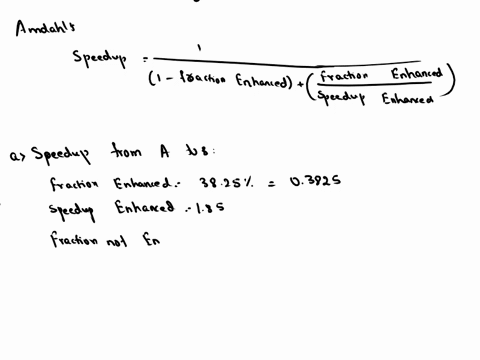 Amdahl's
Speedup = 1
(1 - fraction Enhanced) + (fraction Enhanced
Speedup Enhanced)
a) Speedup from A to B:
fraction Enhanced :- 38.25% = 0.3825
Speedup Enhanced :- 1.85
fraction not En